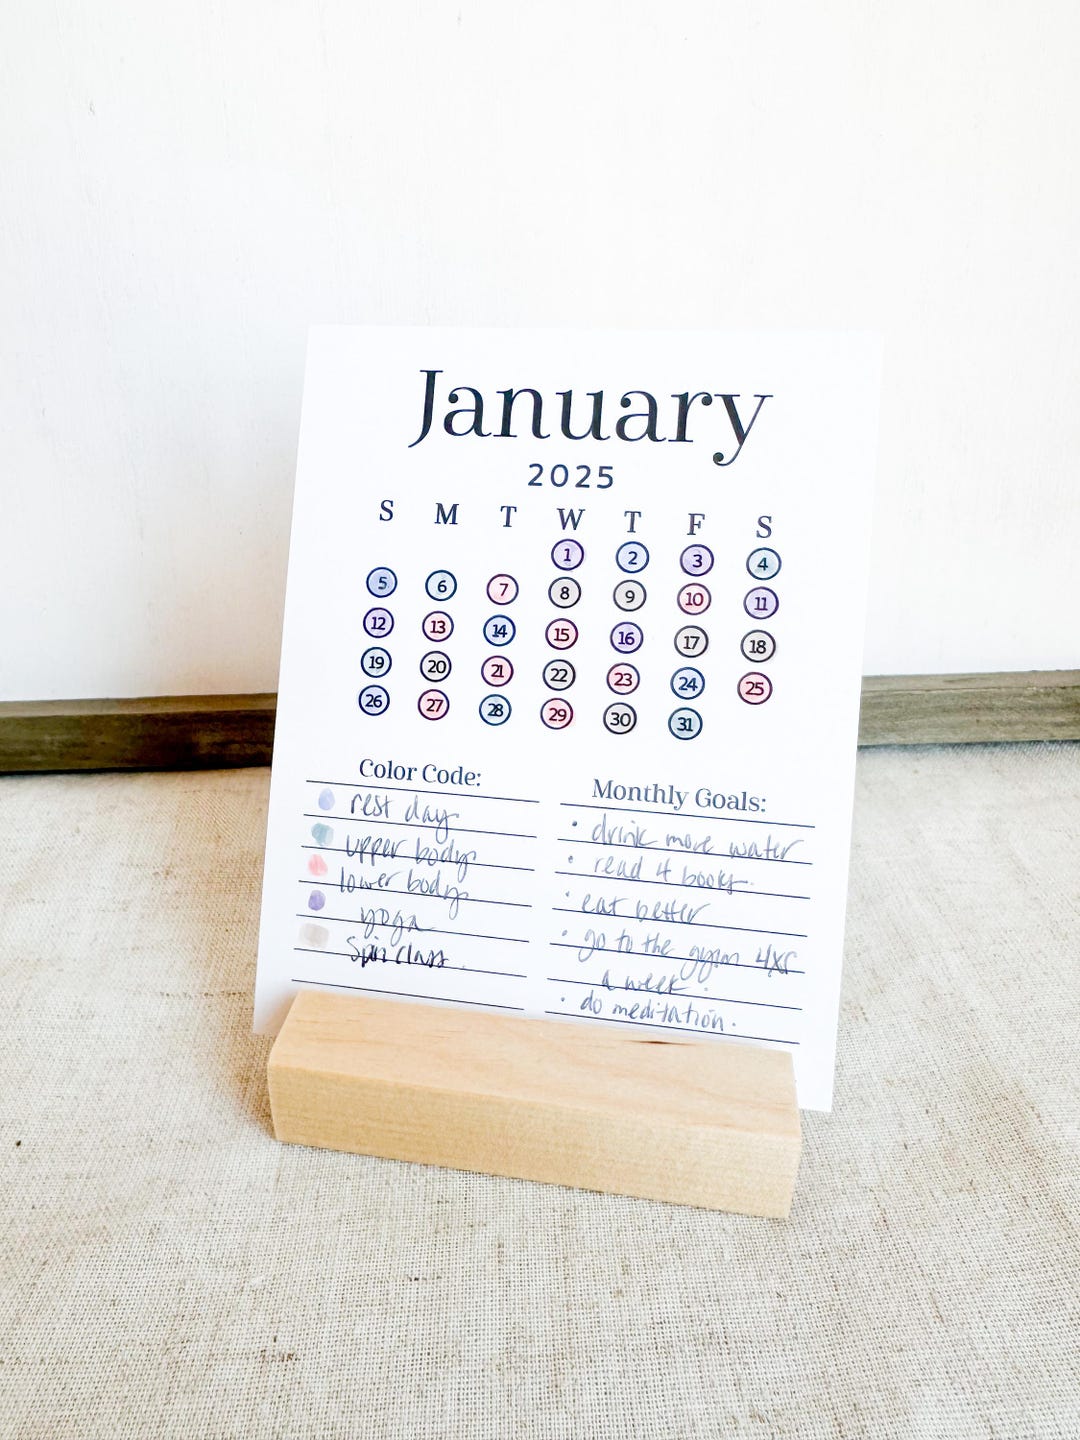 January
2025
S M T W T F S
1 2 3 4
5 6 7 8 9 10 11
12 13 14 15 16 17 18
19 20 21 22 23 24 25
26 27 28 29 30 31
Color Code:
rest day
upper body
lower body
yoga
Spin class.
Monthly Goals:
• drink more water
• read 4 books.
• eat better
• go to the gym 4xs
a week.
• do meditation.